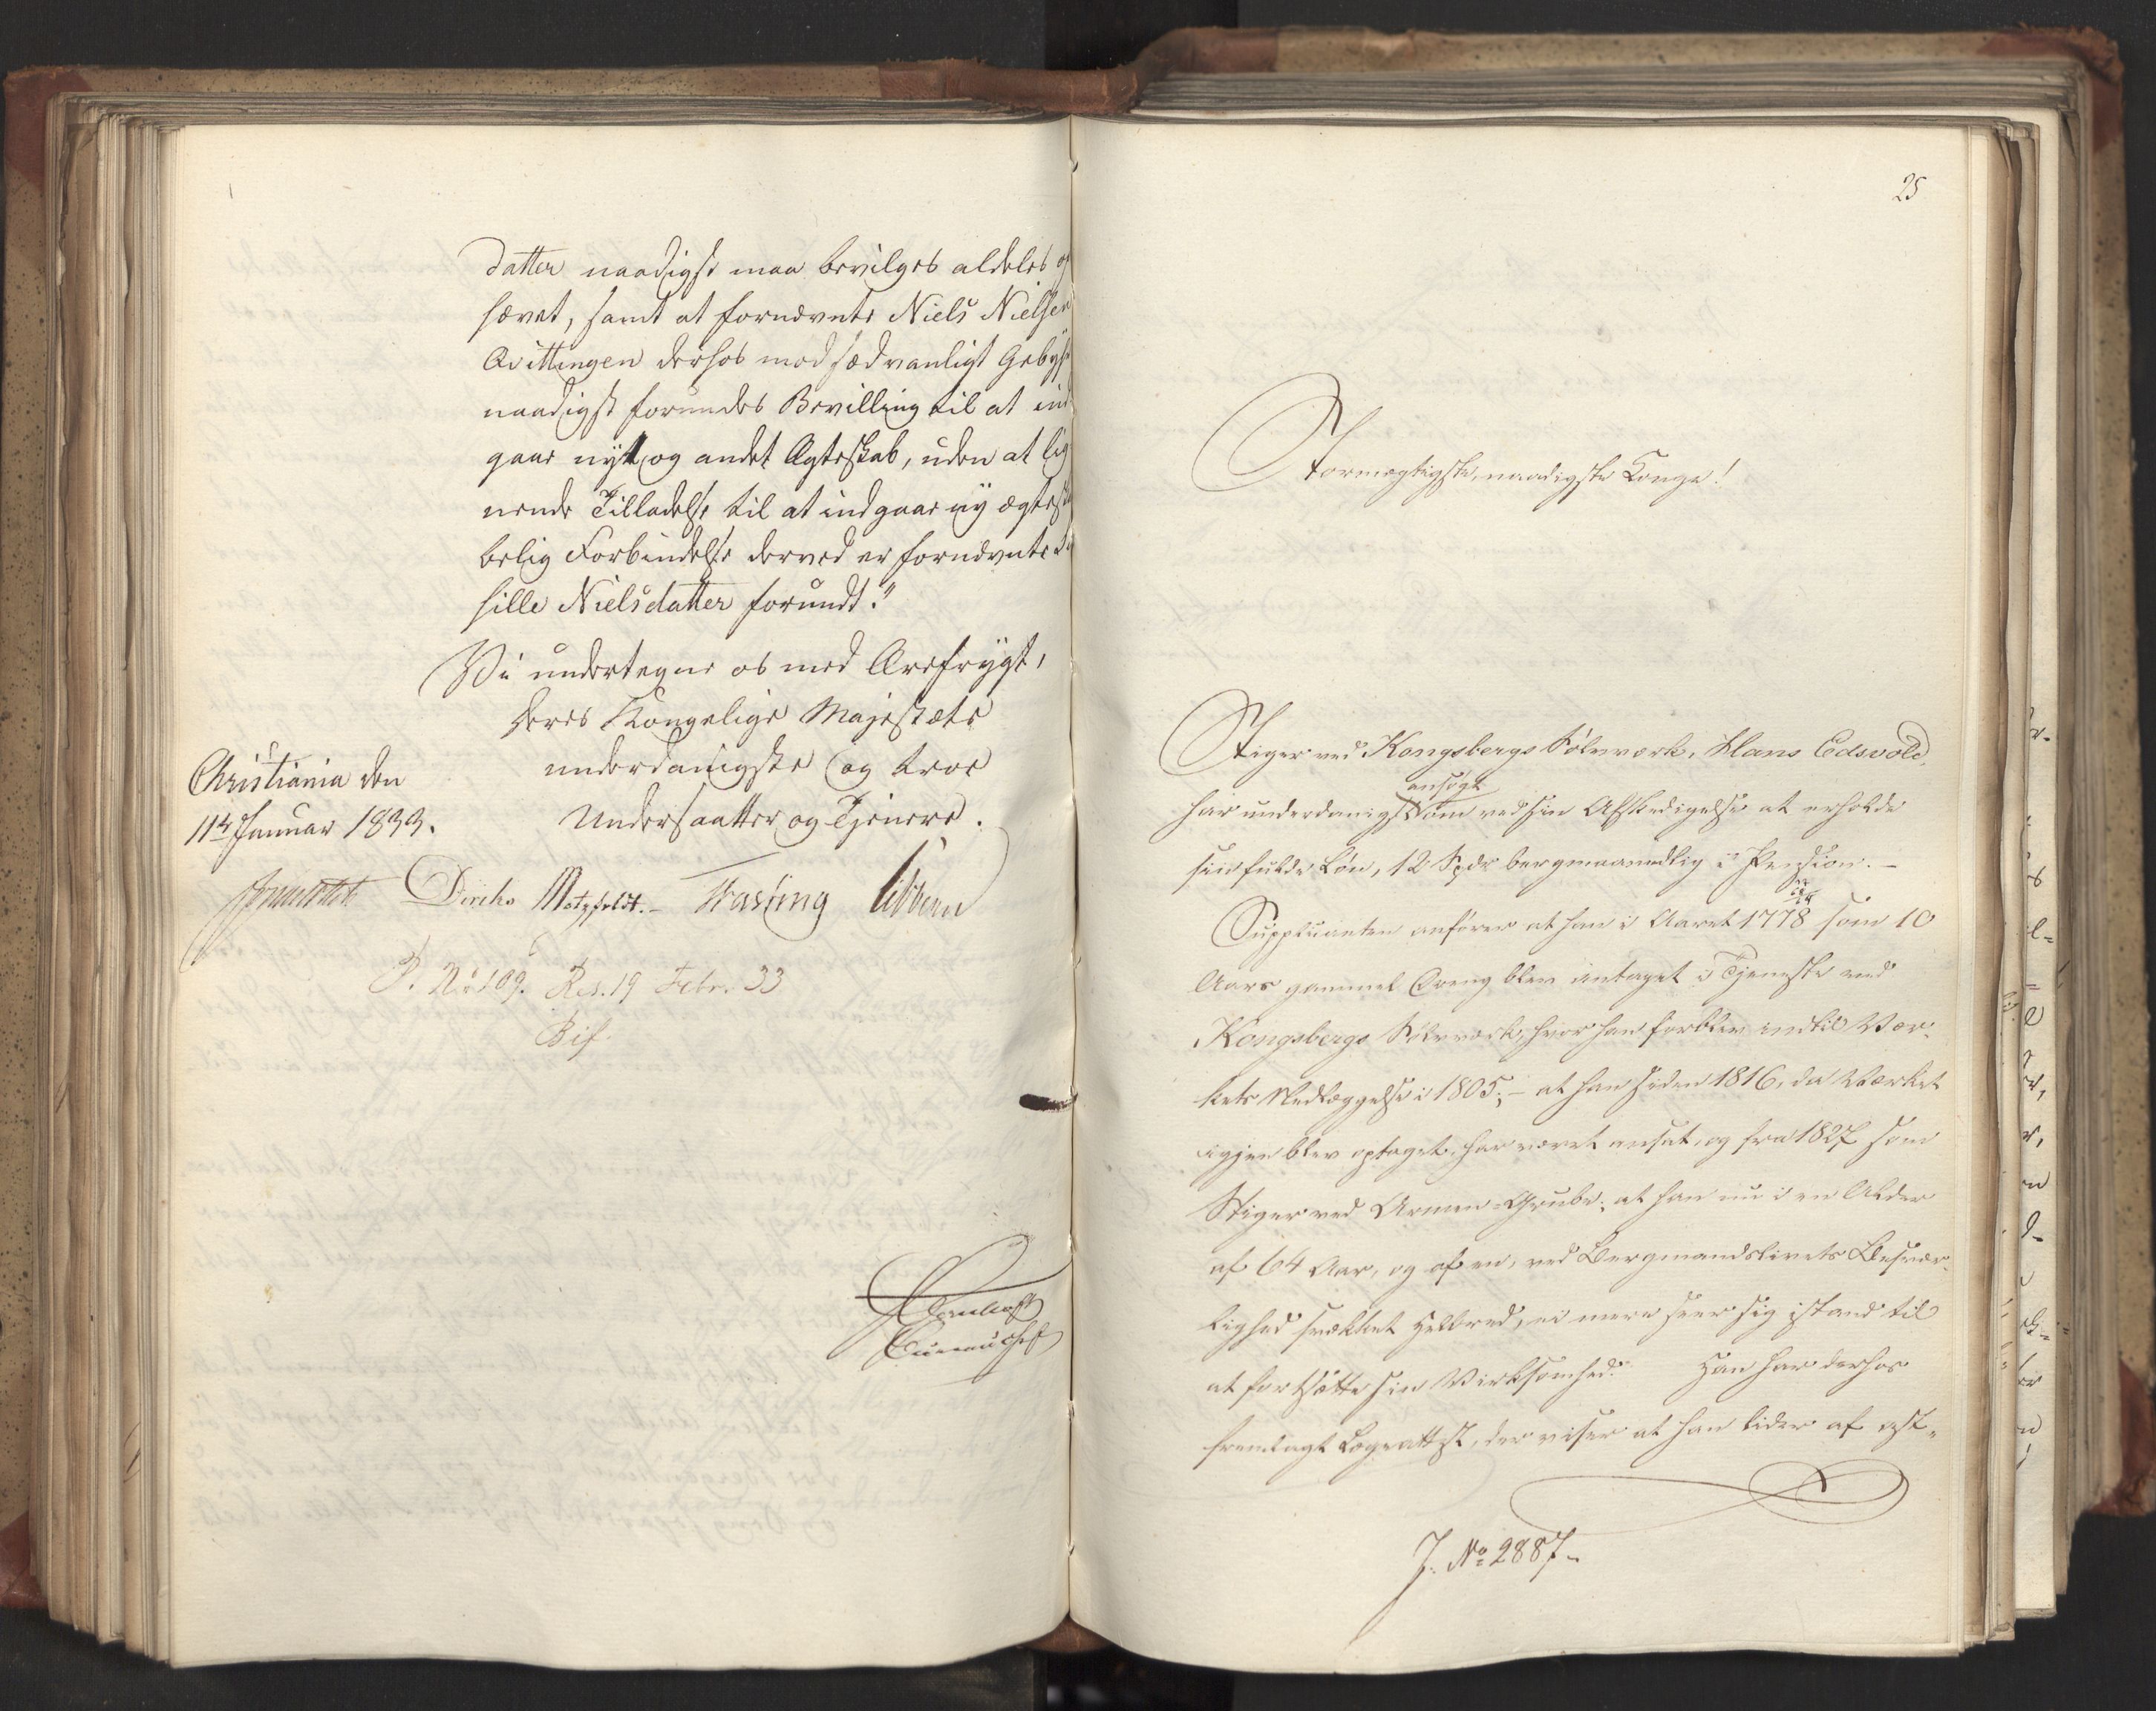 datter naadigst maa bevilges aldeles op
hævet, samt at fornævnte Niels Nielsen
Qvittingen derhos mod sædvanligt Gebyhr
naadigst forundes Bevilling til at ind
gaae nyt og andet Ægteskab, uden at lig
nende Tilladelse til at indgaae ny ægteska
belig Forbindelse derved er fornævnte
sille Nielsdatter forundt."
Vi undertegne os med Ærefrygt,
Deres Kongelige Majestæts
underdanigste og troe
Undersaatter og Tjenere.
Christiania den
11te Januar 1833.
Diriks Motzfeldt. Fasting Sibbern
P. No 109. Res. 19 Febr. 33
Bif.
Bureauchef
25
Stormægtigste, naadigste Konge!
Stiger ved Kongsbergs Sølvværk, Hans Edsvold,
ansøgt
har underdanigst om ved sin Afskedigelse at erholde
sin fulde Løn, 12 Spdr bergmaanedlig i Pension. –
Supplicanten anfører at han i Aaret 1778 som 10
Aars gammel Dreng blev antaget i Tjeneste ved
Kongsbergs Sølvværk, hvor han forblev indtil Vær-
kets Nedlæggelse i 1805; – at han siden 1816, da Værket
igjen blev optaget, har været ansat, og fra 1827 som
Stiger ved Armen-Grube; at han nu i en Alder
af 64 Aar, og af en, ved Bergmandslivets Besvær-
lighed svækket Helbred, ei mere seer sig istand til
at fortsætte sin Virksomhed. Han har derhos
fremlagt Lægeattest, der viser at han lider af ast-
J. No 2887.